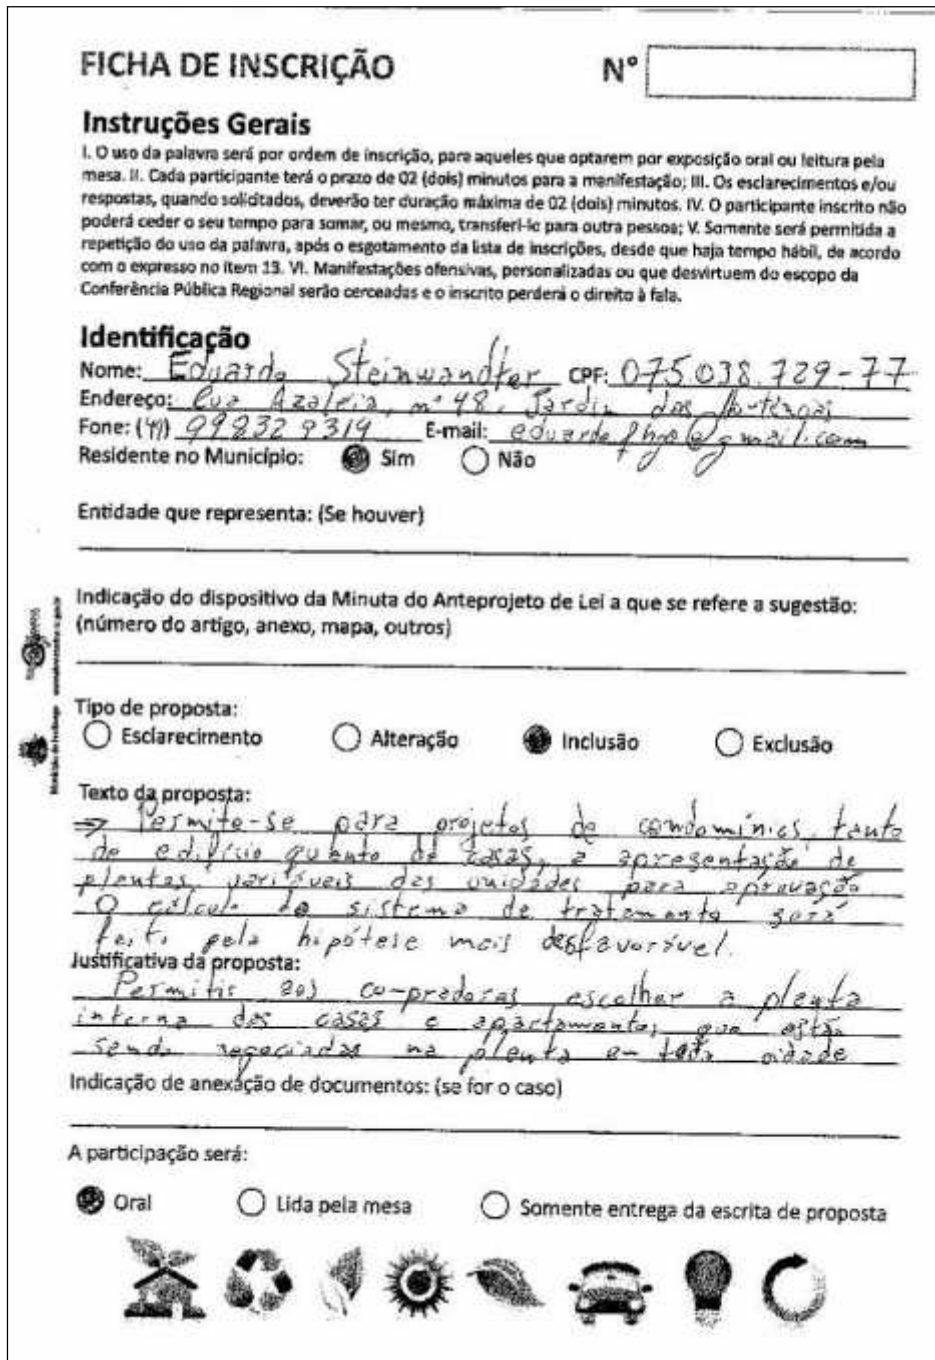 FICHA DE INSCRIÇÃO
Nº
Instruções Gerais
I. O uso da palavra será por ordem de inscrição, para aqueles que optarem por exposição oral ou leitura pela
mesa. II. Cada participante terá o prazo de 02 (dois) minutos para a manifestação; III. Os esclarecimentos e/ou
respostas, quando solicitados, deverão ter duração máxima de 02 (dois) minutos. IV. O participante inscrito não
poderá ceder o seu tempo para somar, ou mesmo, transferi-lo para outra pessoa; V. Somente será permitida a
repetição do uso da palavra, após o esgotamento da lista de inscrições, desde que haja tempo hábil, de acordo
com o expresso no item 13. VI. Manifestações ofensivas, personalizadas ou que desvirtuem do escopo da
Conferência Pública Regional serão cerceadas e o inscrito perderá o direito à fala.
Identificação
Nome: Eduardo Steinwandter CPF: 075.038.729-77
Endereço: Rua Azaleia, nº 48, Jardim das
Fone: (49) 998329314 E-mail: @gmail.com
Residente no Município: Sim Não
Entidade que representa: (Se houver)
Indicação do dispositivo da Minuta do Anteprojeto de Lei a que se refere a sugestão:
(número do artigo, anexo, mapa, outros)
Tipo de proposta:
Esclarecimento Alteração Inclusão Exclusão
Texto da proposta:
=> Permite-se para projetos de condomínios, tanto
de edifício quanto de casas, a apresentação de
plantas variáveis das unidades para aprovação
O cálculo do sistema de tratamento será
feito pela hipótese mais desfavorável.
Justificativa da proposta:
Permitir aos compradores escolher a planta
interna das casas e apartamentos que estão
sendo negociadas na planta em toda cidade
Indicação de anexação de documentos: (se for o caso)
A participação será:
Oral Lida pela mesa Somente entrega da escrita de proposta